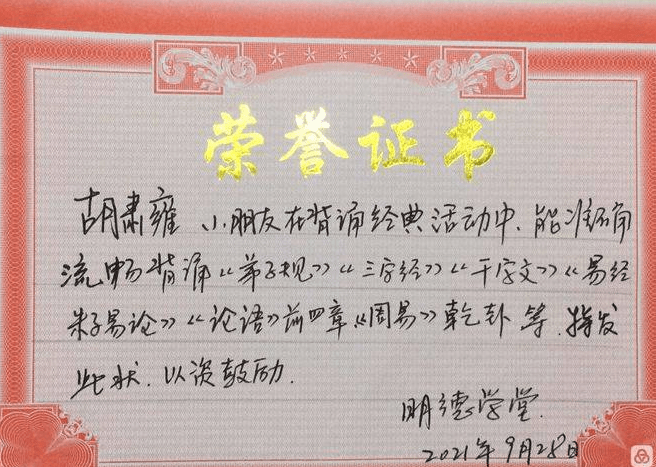 荣誉证书
胡肃雍 小朋友在背诵经典活动中,能准确
流畅背诵《弟子规》《三字经》《千字文》《易经
朱子易论》《论语》前四章《周易》乾卦等.特发
此状.以资鼓励.
明德学堂.
2021年9月28日